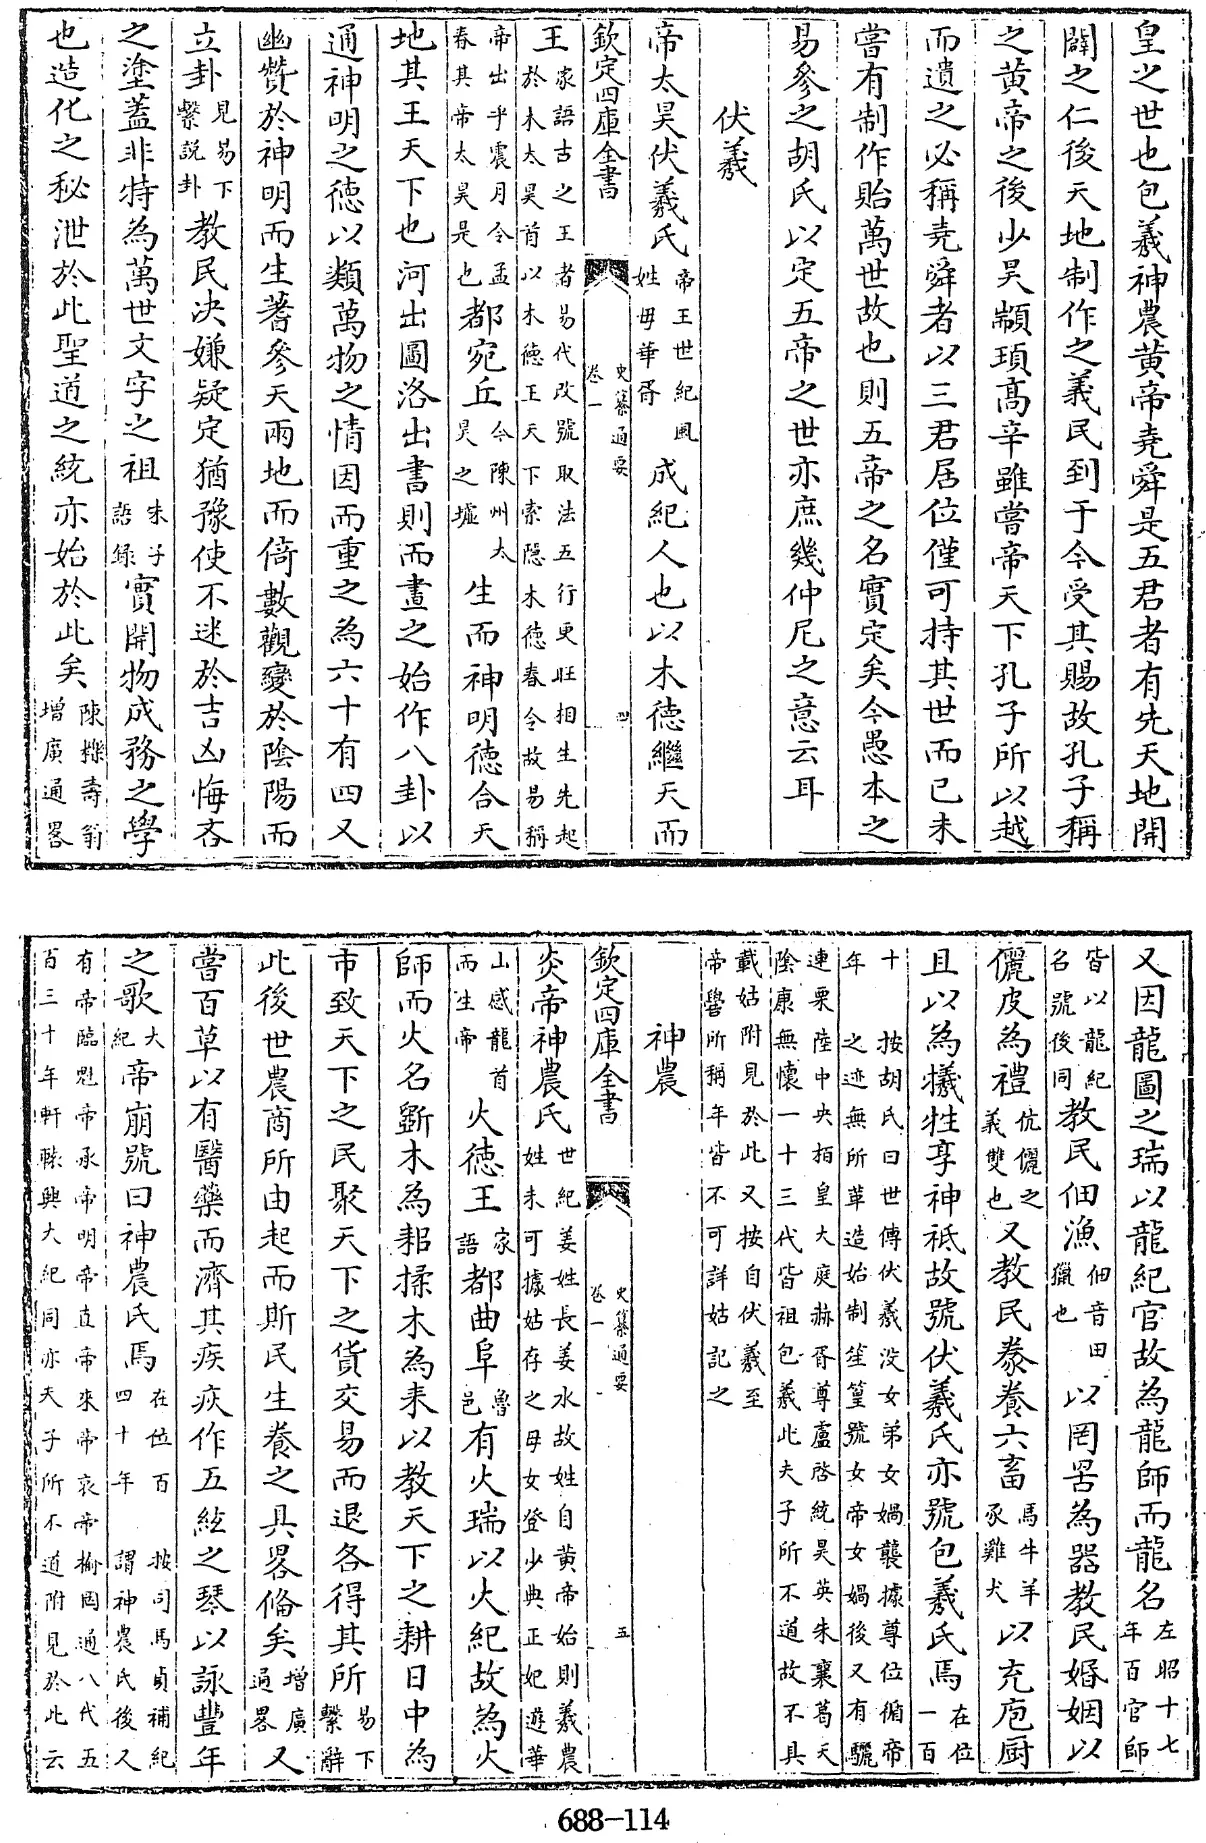 皇之世也包羲神農黄帝堯舜是五君者有先天地開
闢之仁後天地制作之義民到于今受其賜故孔子稱
之黄帝之後少昊顓頊髙辛雖嘗帝天下孔子所以越
而遺之必稱堯舜者以三君居位僅可持其世而已未
嘗有制作貽萬世故也則五帝之名實定矣今愚本之
易參之胡氏以定五帝之世亦庶幾仲尼之意云耳
伏羲
帝太昊伏羲氏帝王世紀風姓母華胥成紀人也以木德繼天而
欽定四庫全書 史纂通要 卷一 四
王家語古之王者易代改號取法五行更旺相生先起於木太昊首以木德王天下索隠木德春令故易稱
帝出乎震月令孟春其帝太昊是也都宛丘今陳州太昊之墟生而神明德合天
地其王天下也河出圖洛出書則而畫之始作八卦以
通神明之德以類萬物之情因而重之為六十有四又
幽贊於神明而生蓍參天兩地而倚數觀變於陰陽而
立卦見易下繫說卦教民决嫌疑定猶豫使不迷於吉凶悔吝
之塗蓋非特為萬世文字之祖朱子語録實開物成務之學
也造化之秘泄於此聖道之統亦始於此矣陳櫟壽翁增廣通畧
又因龍圖之瑞以龍紀官故為龍師而龍名左昭十七年百官師
皆以龍紀名號後同教民佃漁佃音田獵也以罔罟為器教民婚姻以
儷皮為禮伉儷之義雙也又教民豢養六畜馬牛羊豕雞犬以充庖厨
且以為犧牲享神祇故號伏羲氏亦號包羲氏焉在位一百
十年 按胡氏曰世傳伏羲没女弟女媧襲據尊位循帝之迹無所革造始制笙篁號女帝女媧後又有驪
連栗陸中央栢皇大庭赫胥尊盧啓統昊英朱襄葛天陰康無懷一十三代皆祖包羲此夫子所不道故不具
載姑附見於此又按自伏羲至帝嚳所稱年皆不可詳姑記之
神農
欽定四庫全書 史纂通要 卷一 五
炎帝神農氏世紀姜姓長姜水故姓自黄帝始則羲農姓未可據姑存之母女登少典正妃遊華
山感龍首而生帝火德王家語都曲阜魯邑有火瑞以火紀故為火
師而火名斵木為耜揉木為耒以教天下之耕日中為
市致天下之民聚天下之貨交易而退各得其所易下繫辭
此後世農商所由起而斯民生養之具畧備矣增廣通畧又
嘗百草以有醫藥而濟其疾疢作五絃之琴以詠豐年
之歌大紀帝崩號曰神農氏焉在位百四十年 按司馬貞補紀謂神農氏後又
有帝臨魁帝承帝明帝直帝來帝哀帝榆罔通八代五百三十年軒轅興大紀同亦夫子所不道附見於此云
688-114